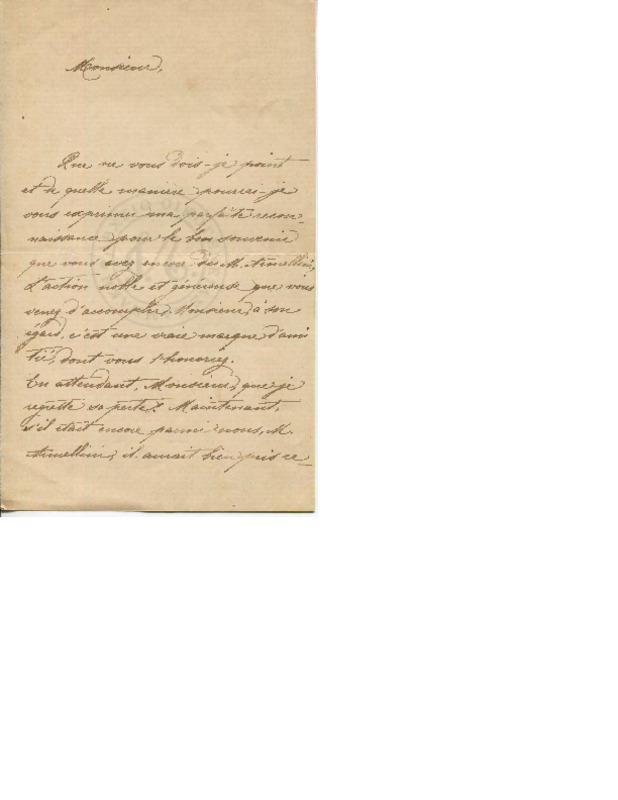 Monsieur,
Que ne vous dois-je point
et de quelle manière pourrai-je
vous exprimer ma parfaite recon-
naissance pour le bon souvenir
que vous avez encore de M.
L'action noble et généreuse que vous
venez d'accomplir, Monsieur, à son
égard, c'est une vraie marque d'ami
tié, dont vous l'honoriez.
En attendant, Monsieur, que je
regrette sa perte! Maintenant,
s'il était encore parmi nous, M.
il aurait bien pris re-